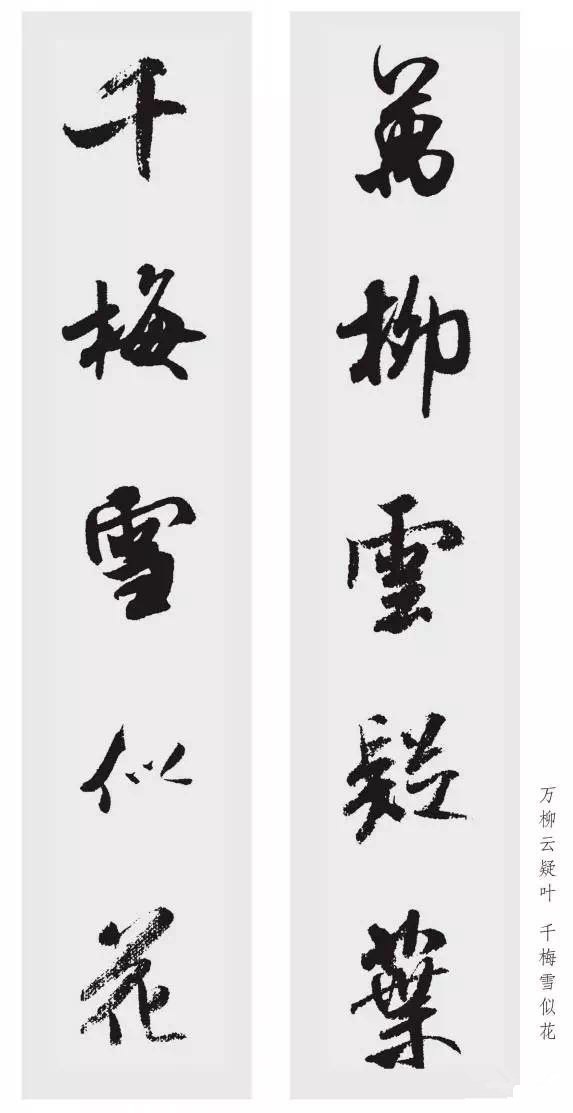 萬柳雲疑葉
千梅雪似花
万柳云疑叶 千梅雪似花